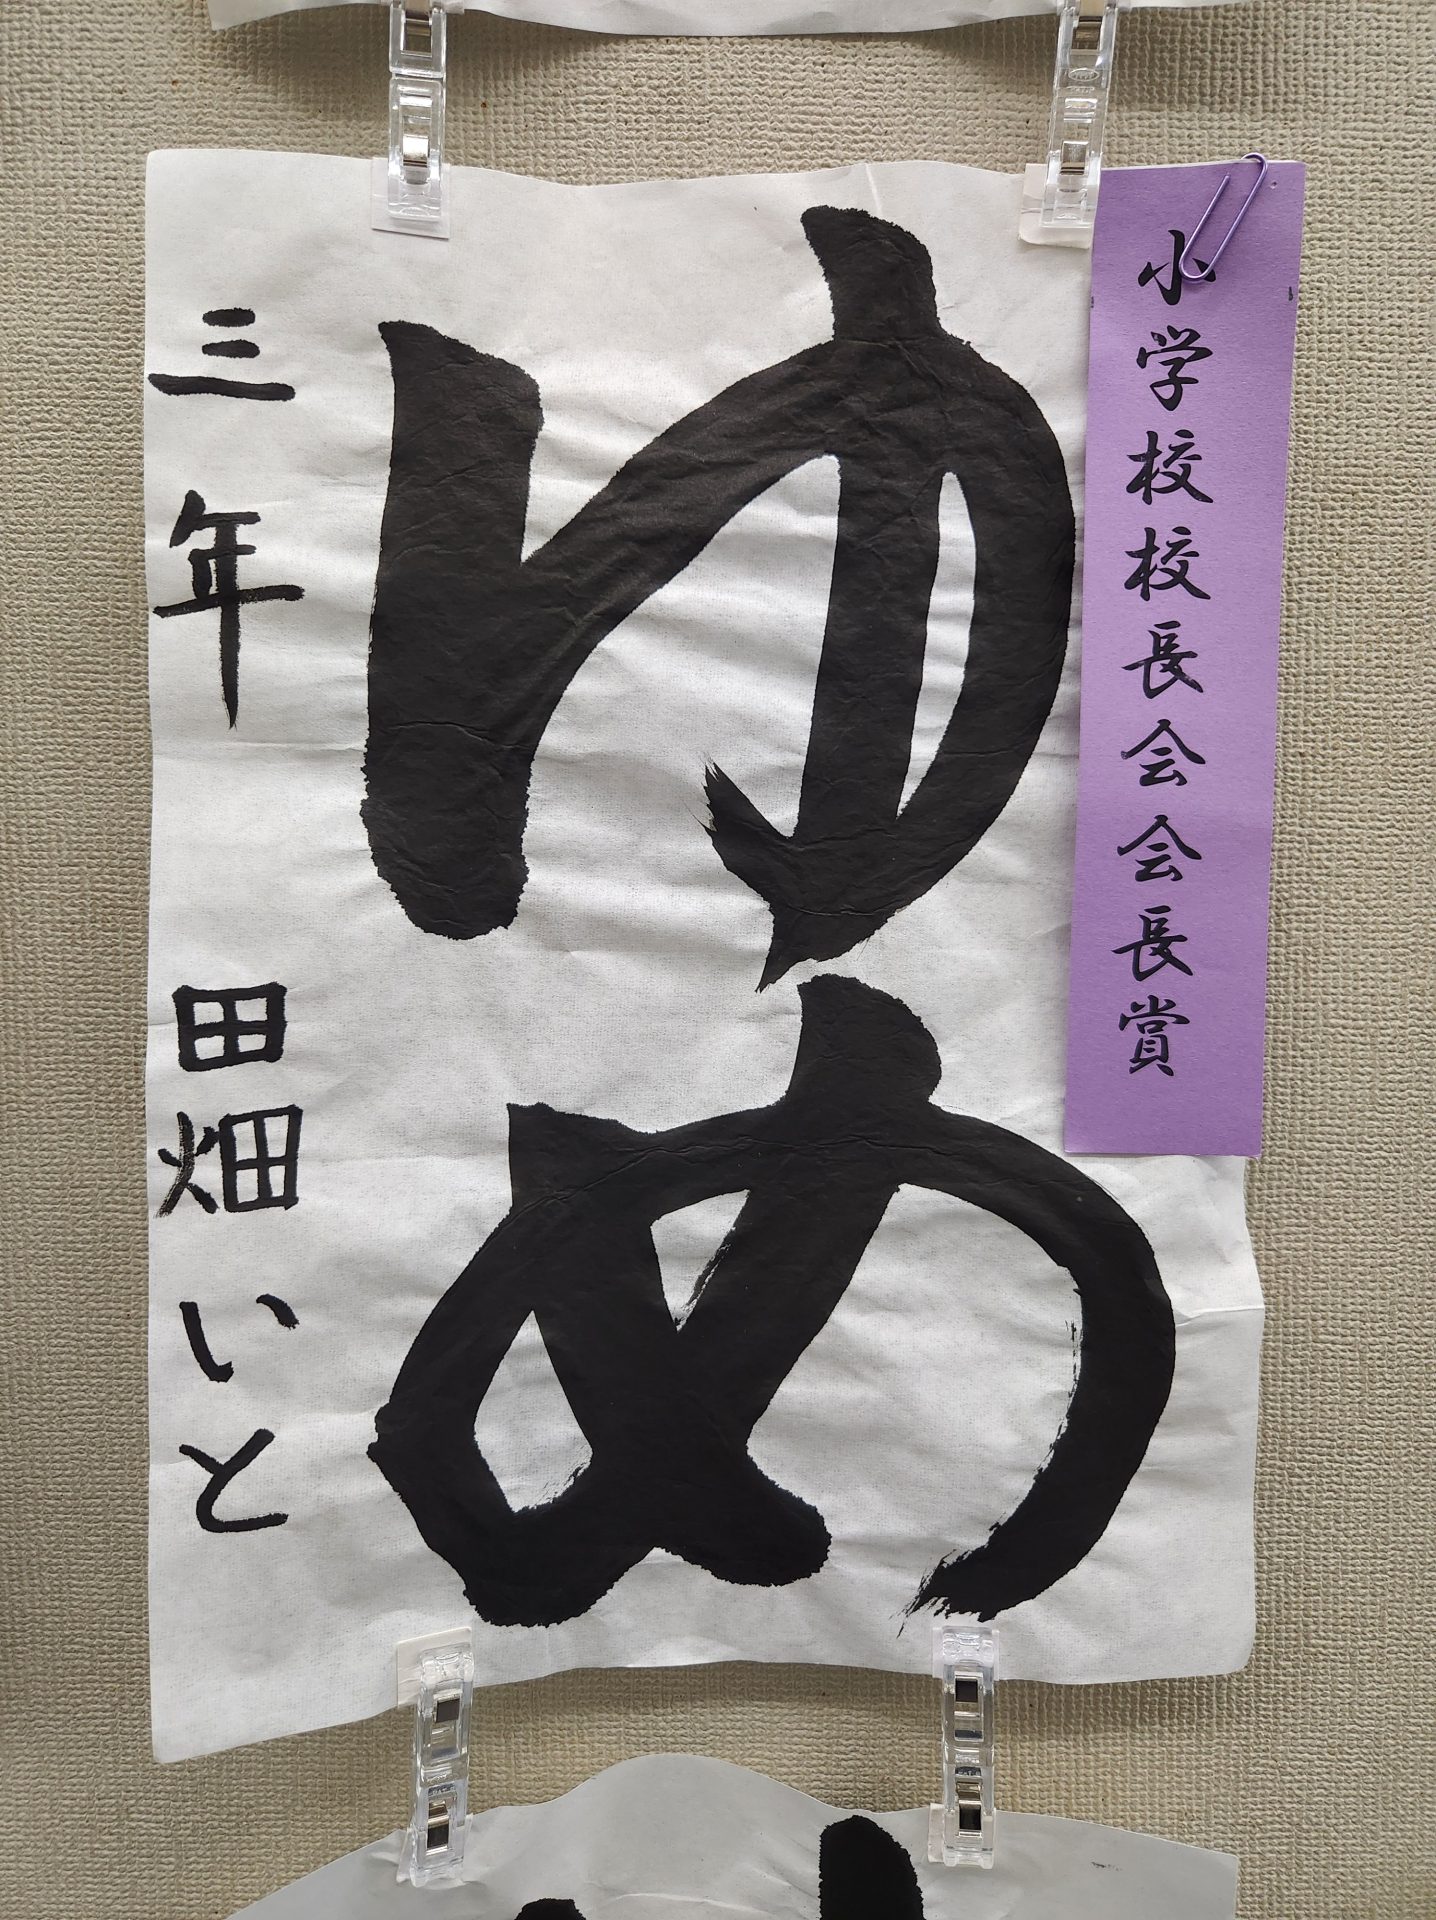 小学校校長会会長賞
ゆめ
三年 田畑いと